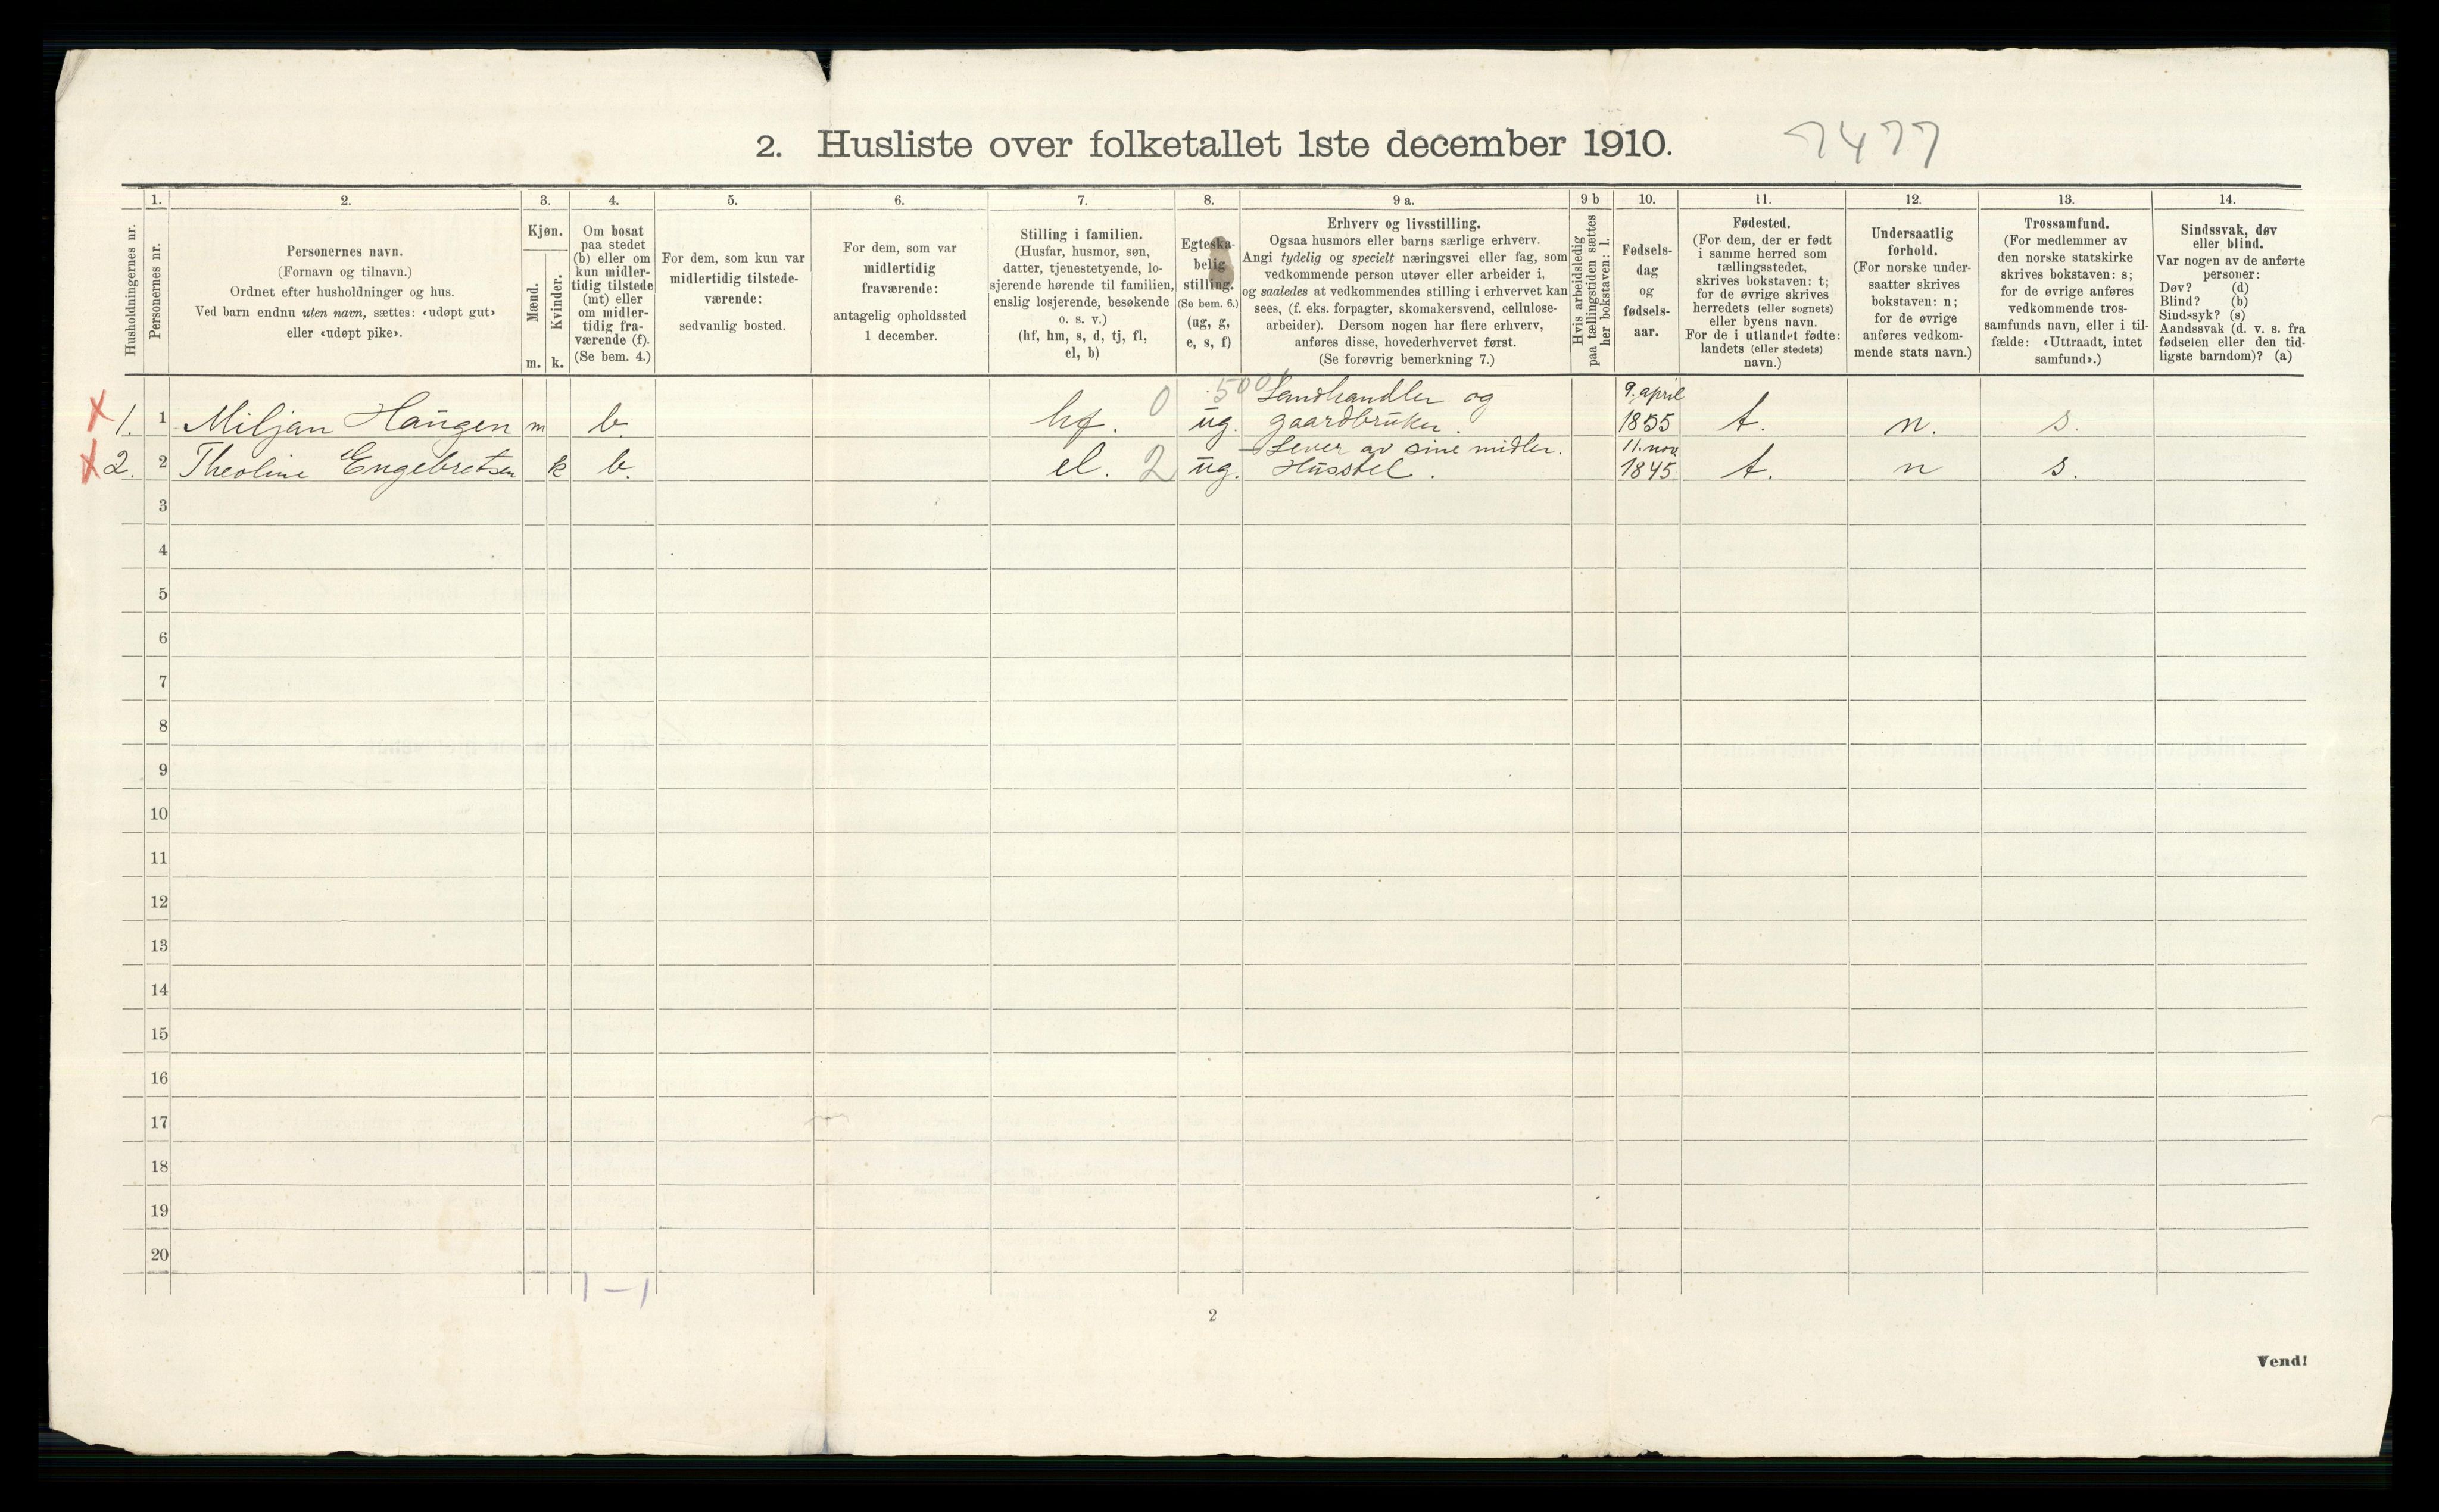 2. Husliste over folketallet 1ste december 1910.
7477
Husholdningernes nr.
1.
Personernes nr.
2.
Personernes navn.
(Fornavn og tilnavn.)
Ordnet efter husholdninger og hus.
Ved barn endnu uten navn, sættes: «udøpt gut»
eller «udøpt pike».
3.
Kjøn.
Mænd.
m.
Kvinder.
k.
4.
Om bosat
paa stedet
(b) eller om
kun midler-
tidig tilstede
(mt) eller
om midler-
tidig fra-
værende (f).
(Se bem. 4.)
5.
For dem, som kun var
midlertidig tilstede-
værende:
sedvanlig bosted.
6.
For dem, som var
midlertidig
fraværende:
antagelig opholdssted
1 december.
7.
Stilling i familien.
(Husfar, husmor, søn,
datter, tjenestetyende, lo-
sjerende hørende til familien,
enslig losjerende, besøkende
o. s. v.)
(hf, hm, s, d, tj, fl,
el, b)
8.
Egteska-
belig
stilling.
(Se bem. 6.)
(ug, g,
e, s, f)
9 a.
Erhverv og livsstilling.
Ogsaa husmors eller barns særlige erhverv.
Angi tydelig og specielt næringsvei eller fag, som
vedkommende person utøver eller arbeider i,
og saaledes at vedkommendes stilling i erhvervet kan
sees, (f. eks. forpagter, skomakersvend, cellulose-
arbeider). Dersom nogen har flere erhverv,
anføres disse, hovederhvervet først.
(Se forøvrig bemerkning 7.)
9 b
Hvis arbeidsledig
paa tællingstiden sættes
her bokstaven: l.
10.
Fødsels-
dag
og
fødsels-
aar.
11.
Fødested.
(For dem, der er født
i samme herred som
tællingsstedet,
skrives bokstaven: t;
for de øvrige skrives
herredets (eller sognets)
eller byens navn.
For de i utlandet fødte:
landets (eller stedets)
navn.)
12.
Undersaatlig
forhold.
(For norske under-
saatter skrives
bokstaven: n;
for de øvrige
anføres vedkom-
mende stats navn.)
13.
Trossamfund.
(For medlemmer av
den norske statskirke
skrives bokstaven: s;
for de øvrige anføres
vedkommende tros-
samfunds navn, eller i til-
fælde: «Uttraadt, intet
samfund».)
14.
Sindssvak, døv
eller blind.
Var nogen av de anførte
personer:
Døv? (d)
Blind? (b)
Sindssyk? (s)
Aandssvak (d. v. s. fra
fødselen eller den tid-
ligste barndom)? (a)
500 Landhandler og 9. april
x 1. 1 Miljan Haugen m b. hf. 0 ug. gaardbruker. 1855 t. n. s.
Lever av sine midler. 11. nov
x 2. 2 Theoline Engebretsen k b. el. 2 ug. Husstel. 1845 t. n s.
3
4
5
6
7
8
9
10
11
12
13
14
15
16
17
18
19
20
1-1
2
Vend!